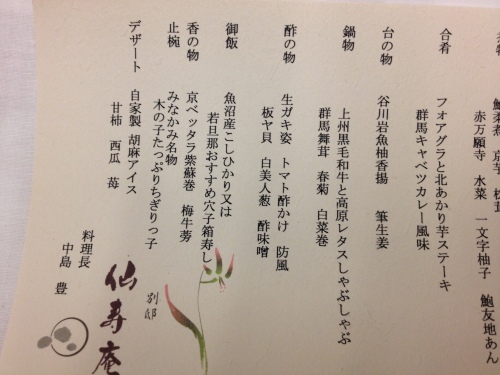 鮑友地あん
赤万願寺 水菜 一文字柚子
合肴
フォアグラと北あかり芋ステーキ
群馬キャベツカレー風味
台の物
谷川岩魚柚香揚 筆生姜
鍋物
上州黒毛和牛と高原レタスしゃぶしゃぶ
群馬舞茸 春菊 白菜巻
酢の物
生ガキ姿 トマト酢かけ 防風
板ヤ貝 白美人葱 酢味噌
御飯
魚沼産こしひかり又は
若旦那おすすめ穴子箱寿し
香の物
京ベッタラ紫蘇巻 梅牛蒡
止椀
みなかみ名物
木の子たっぷりちぎりっ子
デザート
自家製 胡麻アイス
甘柿 西瓜 苺
料理長
中島 豊
別邸
仙寿庵